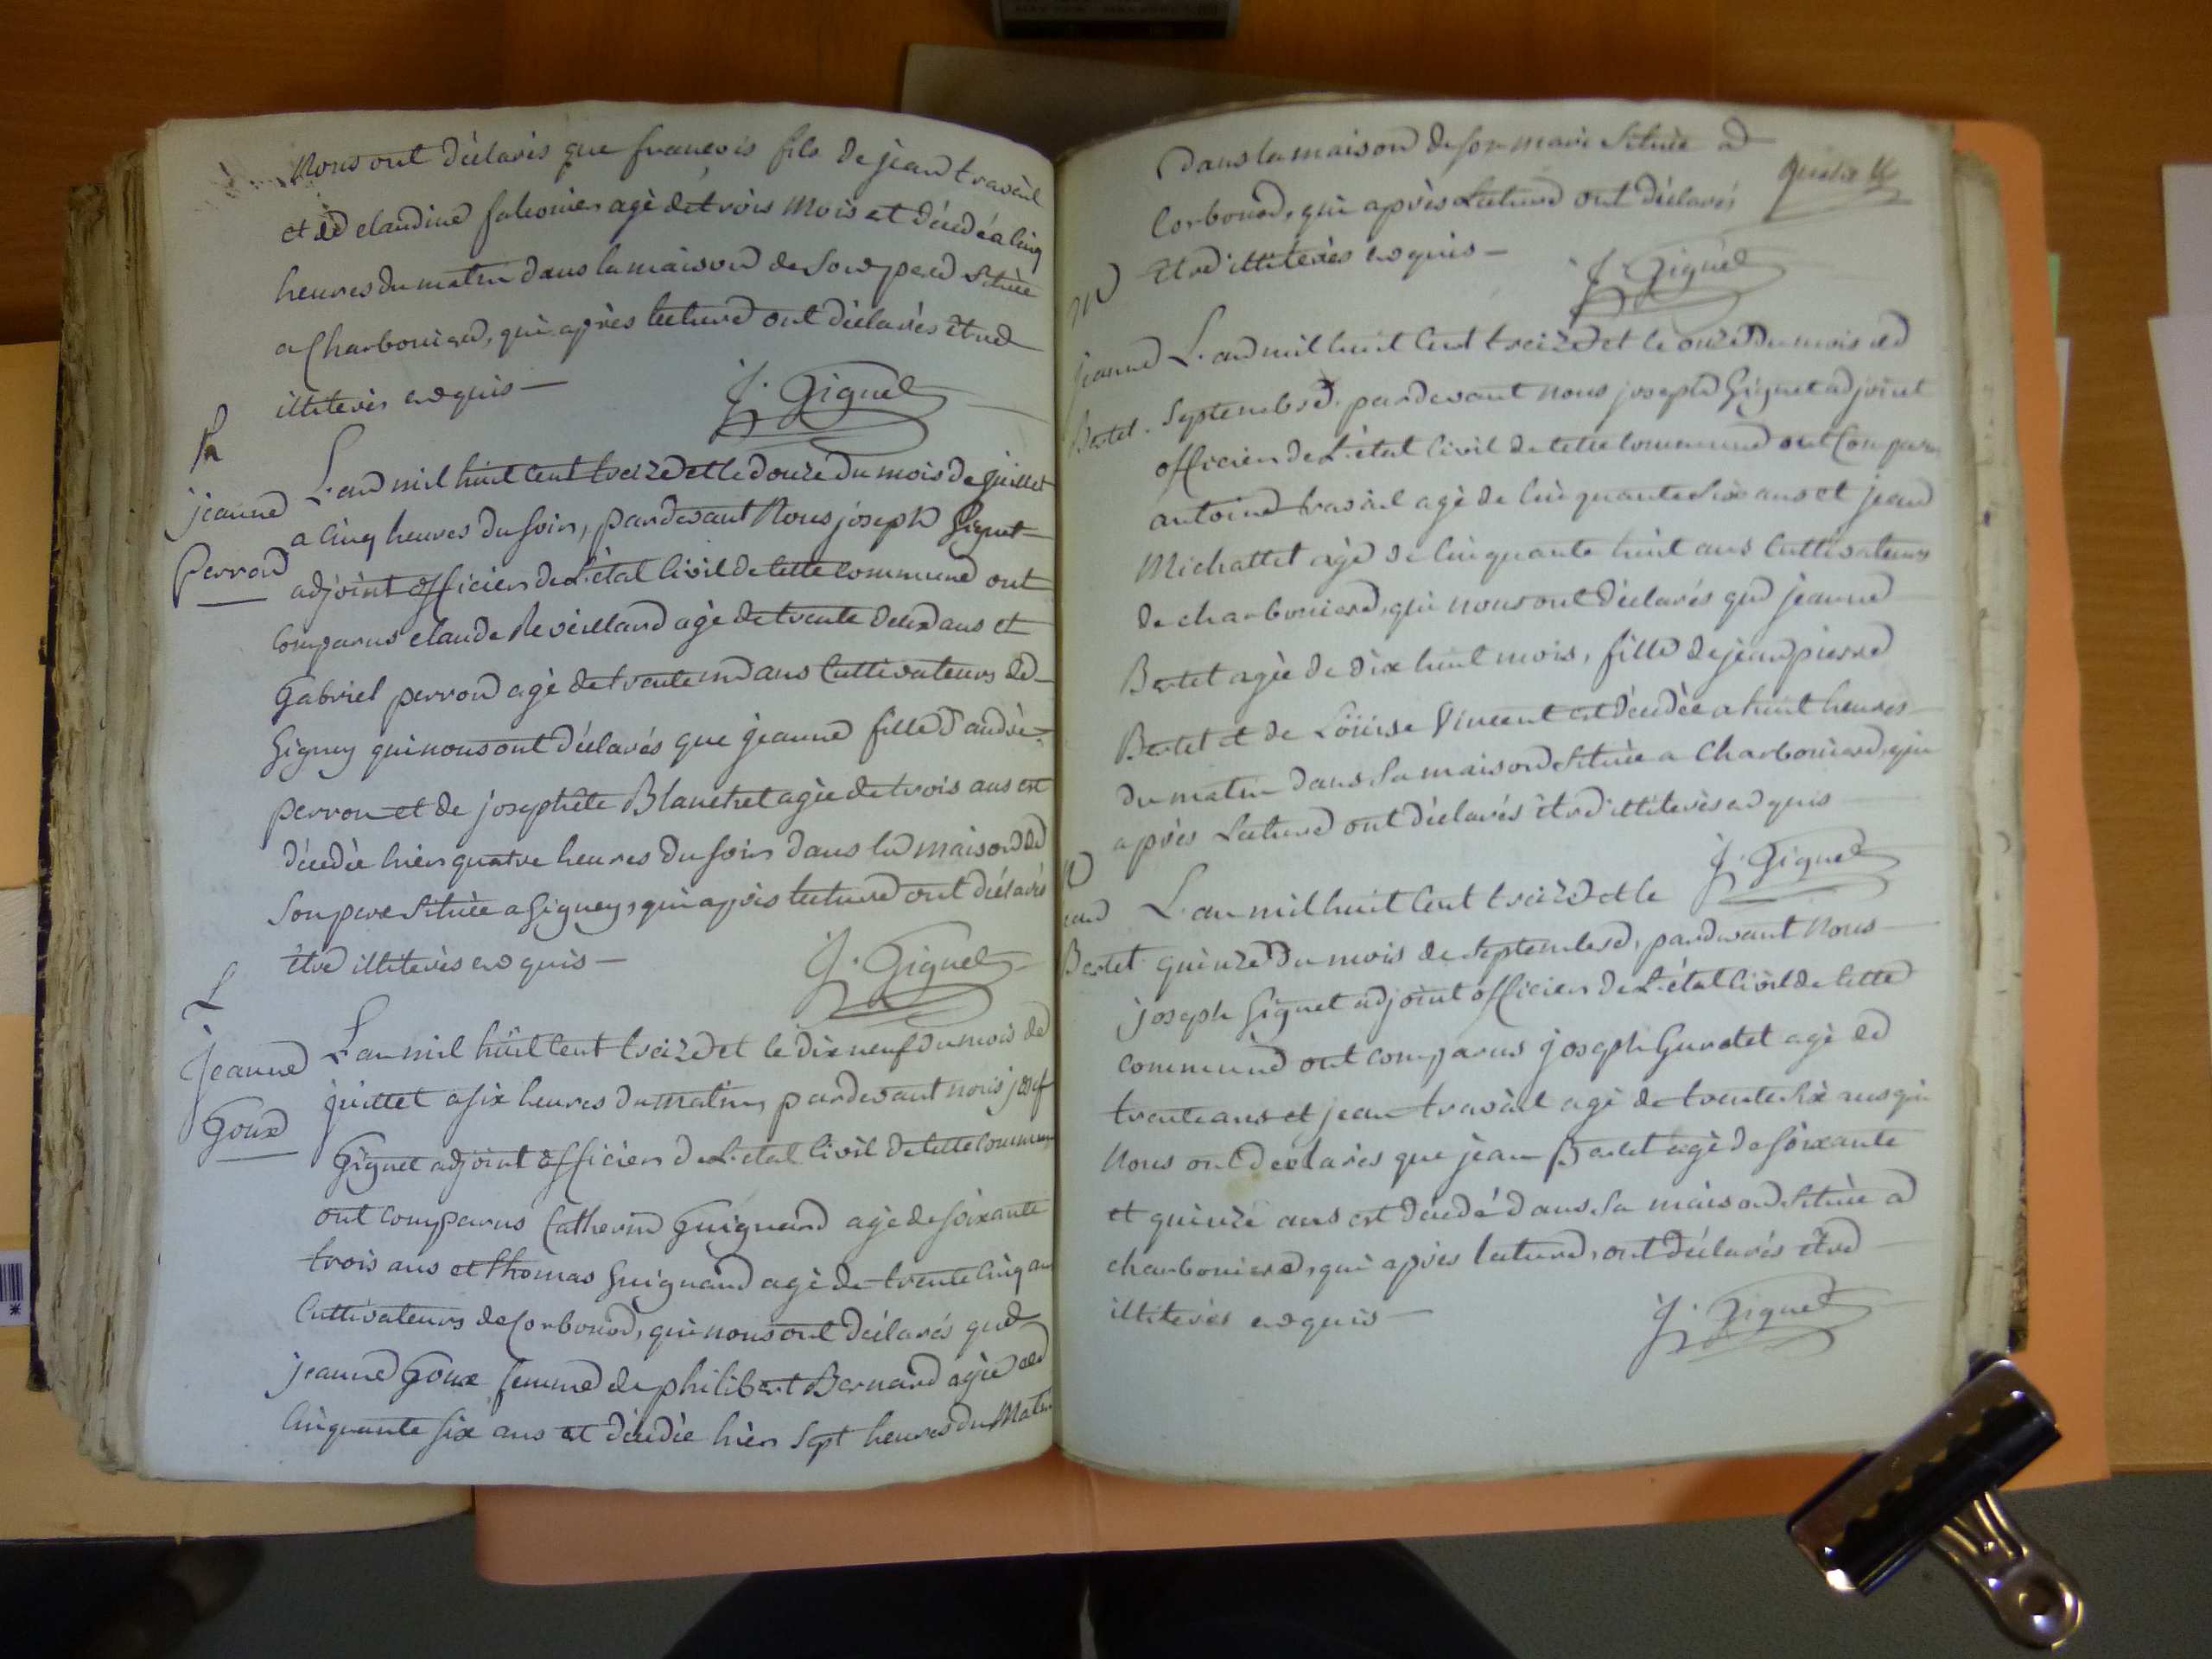 Nous ont déclarés que françois fils de jean travail
et de claudine falconier agé de trois mois et décédé a cinq
heures du matin dans la maison de son pere située
a Charboniere, qui après lecture ont déclarés être
illiterés enquis —
J. Giguet
jeanne
Perron
L'an mil huit cent treize et le douze du mois de juillet
a cinq heures du soir, pardevant Nous joseph Giguet
adjoint officier de L'état civil de cette commune ont
comparus claude Reveillard agé de trente deux ans et
Gabriel perron agé de trente un ans Cultivateurs de
Gigney qui nous ont déclarés que jeanne fille d'andré
perron et de josephête Blanchet agée de trois ans est
décédée hier quatre heures du soir dans la maison de
son pere située a Gigney, qui après lecture ont déclarés
être illiterés enquis —
J. Giguet
Jeanne
Goux
L'an mil huit cent treize et le dix neuf du mois de
juillet a six heures du matin, pardevant nous josef
Giguet adjoint officier de L'etat civil de cette commune
ont comparus Catherin Guignard agé de soixante
trois ans et thomas Guignard agé de trente cinq ans
Cultivateurs de Corbonod, qui nous ont déclarés que
jeanne Goux femme de philibert Bernard agée de
cinquante six ans et décédée hier sept heures du Matin
dans la maison de son mari située a
Corbonod, qui après Lecture ont déclarés
être illiterés enquis —
J. Giguet
jeanne
Bertet
L'an mil huit cent treize et le onze du mois de
Septembre pardevant nous joseph Giguet adjoint
officier de L'état civil de cette commune ont comparu
antoine travail agé de cinquante six ans et jean
Michallet agé de cinquante huit ans cultivateurs
de charboniere, qui nous ont déclarés que jeanne
Bertet agée de dix huit mois, fille de jean pierre
Bertet et de Loüise Vincent est décédée a huit heures
du matin dans sa maison située a Charboniere, qui
après Lecture ont déclarés être illiterés enquis
J. Giguet
jean
Bertet
L'an mil huit cent treize et le
quinze du mois de septembre, pardevant Nous
joseph Giguet adjoint officier de L'état civil de cette
commune ont comparus joseph Guratet agé de
trente ans et jean travail agé de trente six ans qui
Nous ont declarés que jean Bertet agé de soixante
et quinze ans est décédé dans sa maison située a
charboniere, qui après lecture, ont déclarés être
illiterés enquis —
J. Giguet